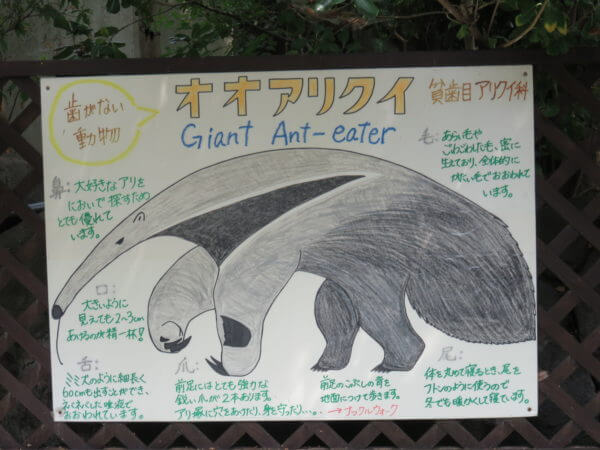 歯がない
動物
オオアリクイ
貧歯目 アリクイ科
Giant Ant-eater
毛:あらい毛や
ごわごわした毛、密に
生えており、全体的に
かたい毛でおおわれて
います。
鼻:大好きなアリを
においで探すため
とても優れて
います。
口:
大きいように
見えても2~3cm
あけるのが精一杯!
舌:
ミミズのように細長く
60cmも出すことができ、
ネバネバした唾液で
おおわれています。
爪:
前足にはとても強力な
鋭い爪が2本あります。
アリ塚に穴をあけたり、身を守ったり…。
前足のこぶしの背を
地面につけて歩きます。
→ナックルウォーク
尾:
体を丸めて寝るとき、尾を
フトンのように使うので
冬でも暖かくして寝ています。